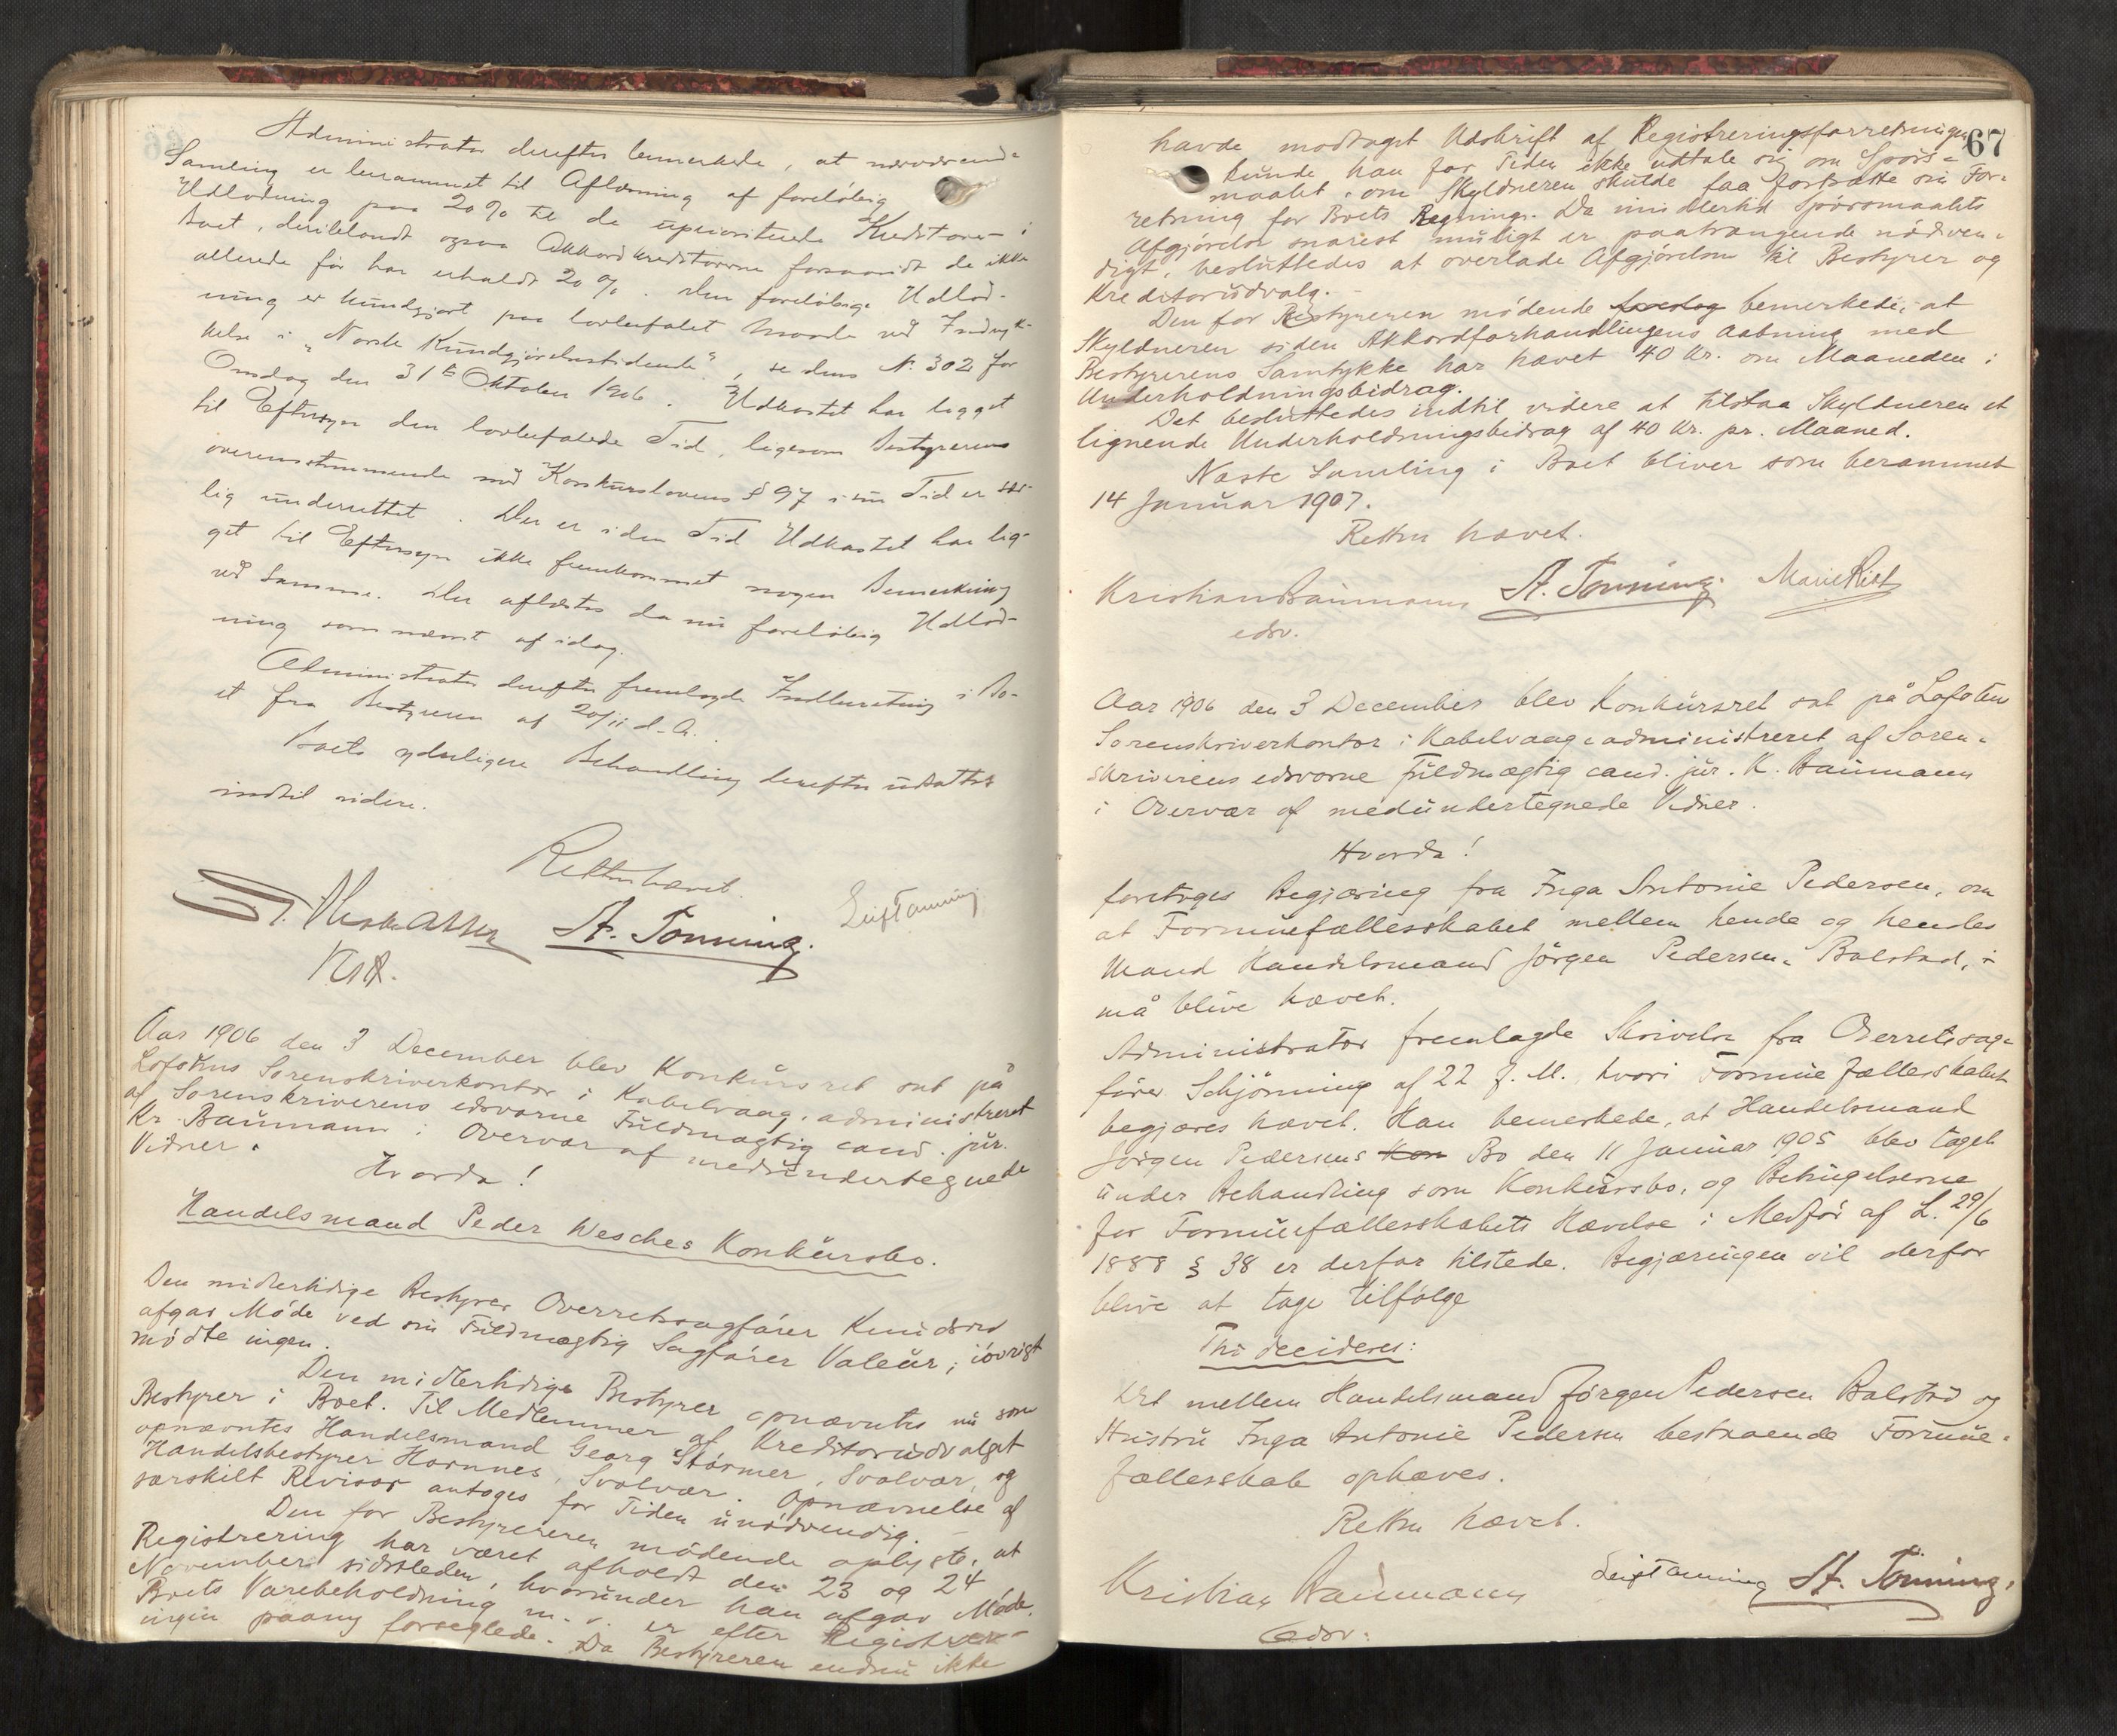 Administrator derefter bemerkede, at nærværende
Samling er berammet til Aflæsning af foreløbig
Udlodning paa 20% til de upriviterede Kreditorer i
boet, deriblandt ogsaa Akkordkreditorerne forsaavidt de ikke
allerede før har erholdt 20%. Den foreløbige Udlod-
ning er kundgjort paa lovbefalet Maade ved Indryk-
kelse i "Norske Kundgjørelsestidende", se dens No 302 for
Onsdag den 31te Oktober 1906. Udkastet har ligget
til Eftersyn den lovbefalede Tid, ligesom Bestyreren
overensstemmende med Konkurslovens § 97 i sin Tid er sær-
lig underrettet. Der er i den Tid Udkastet har lig-
get til Eftersyn ikke fremkommet nogen Bemerkning
ved samme. Der aflæstes da nu foreløbig Udlod-
ning som nævnt af idag.
Administrator derefter fremlagde Indberetning i Bo-
et fra Bestyreren af 20/11 d. A.
Boets yderligere Behandling derefter udsattes
indtil videre.
Retten hævet.
St. Tønning.
Leif Tønning
Aar 1906 den 3 December blev Konkursret sat på
Lofotens Sorenskriverkontor i Kabelvaag, administreret
af Sorenskriverens edsvorne Fuldmægtig cand. jur.
Kr. Baumann i Overvær af medundertegnede
Vidner.
Hvorda!
Handelsmand Peder Wesches Konkursbo.
Den midlertidige Bestyrer Overretssagfører Knudsen
afgav Møde ved sin Fuldmægtig Sagfører Valeur; iøvrigt
mødte ingen.
Den midlertidige Bestyrer opnævntes nu som
Bestyrer i Boet. Til Medlemmer af Kreditorudvalget
opnævntes Handelsmand Georg Størmer, Svolvær, og
Handelsbestyrer Hornnes, Svolvær. Opnævnelse af
særskilt Revisor antoges for Tiden unødvendig.
Den for Bestyreren mødende oplyste, at
Registrering har været afholdt den 23 og 24
November sidstleden, hvorunder han afgav Møde.
Boets Varebeholdning m. v. er efter Registrer-
ingen paany forseglede. Da Bestyreren endnu ikke
67
havde modtaget Udskrift af Registreringsforretningen
kunde han for Tiden ikke udtale sig om Spørs-
maalet, om Skyldneren skulde faa fortsætte sin For-
retning for Boets Regning. Da imidlertid Spørsmaalets
Afgjørelse snarest muligt er paatrængende nødven-
digt, besluttedes at overlade Afgjørelsen til Bestyrer og
Kreditorudvalg.
Den for Bestyreren mødende bemerkede, at
Skyldneren siden Akkordforhandlingens Aabning med
Bestyrerens Samtykke har hævet 40 Kr. om Maaneden i
Underholdningsbidrag.
Det besluttedes indtil videre at tilstaa Skyldneren et
lignende Underholdningsbidrag af 40 Kr. pr. Maaned.
Næste Samling i Boet bliver som berammet
14 Januar 1907.
Retten hævet.
Kristian Baumann St. Tønning. Marie Rist
edsv.
Aar 1906 den 3 December blev Konkursret sat på Lofotens
Sorenskriverkontor i Kabelvaag administreret af Soren-
skriverens edsvorne Fuldmægtig cand. jur. K. Baumann
i Overvær af medundertegnede Vidner.
Hvorda!
foretoges Begjæring fra Inga Antonie Pedersen, om
at Formuefællesskabet mellem hende og hendes
Mand Handelsmand Jørgen Pedersen, Balstad,
må blive hævet.
Administrator fremlagde Skrivelse fra Overretssag-
fører Schjønning af 22 f. M. hvori Formuefællesskabet
begjæres hævet. Han bemerkede, at Handelsmand
Jørgen Pedersens Kon Bo den 11 Januar 1905 blev taget
under Behandling som Konkursbo, og Betingelserne
for Formuefællesskabets Hævelse i Medfør af L. 29/6
1888 § 38 er derfor tilstede. Begjæringen vil derfor
blive at tage tilfølge
Thi decideres:
Det mellem Handelsmand Jørgen Pedersen Balstad og
Hustru Inga Antonie Pedersen bestaaende Formue-
fællesskab ophæves.
Retten hævet.
Kristian Baumann Leif Tønning St. Tønning.
Edsv.